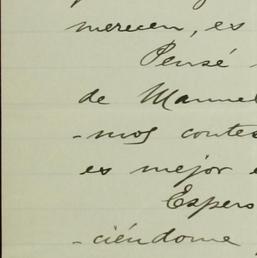 merecen, es
Pensé
de Manuel
-mos contes
es mejor
Espero
-ciéndome,